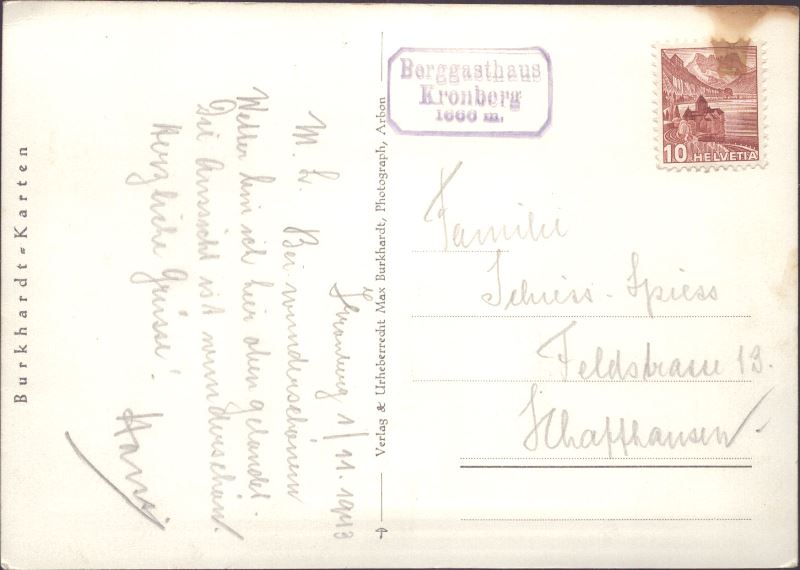 Burkhardt-Karten
Kronberg 1/11. 1943
M. L. Bei wunderschönem
Wetter bin ich hier oben gelandet.
Die Aussicht ist wunderschön.
Herzliche Grüsse!
Hans.
Verlag & Urheberrecht Max Burkhardt, Photograph, Arbon
Berggasthaus
Kronberg
1666 m.
10 HELVETIA
Familie
Schiess-Spiess
Feldstrasse 13.
Schaffhausen